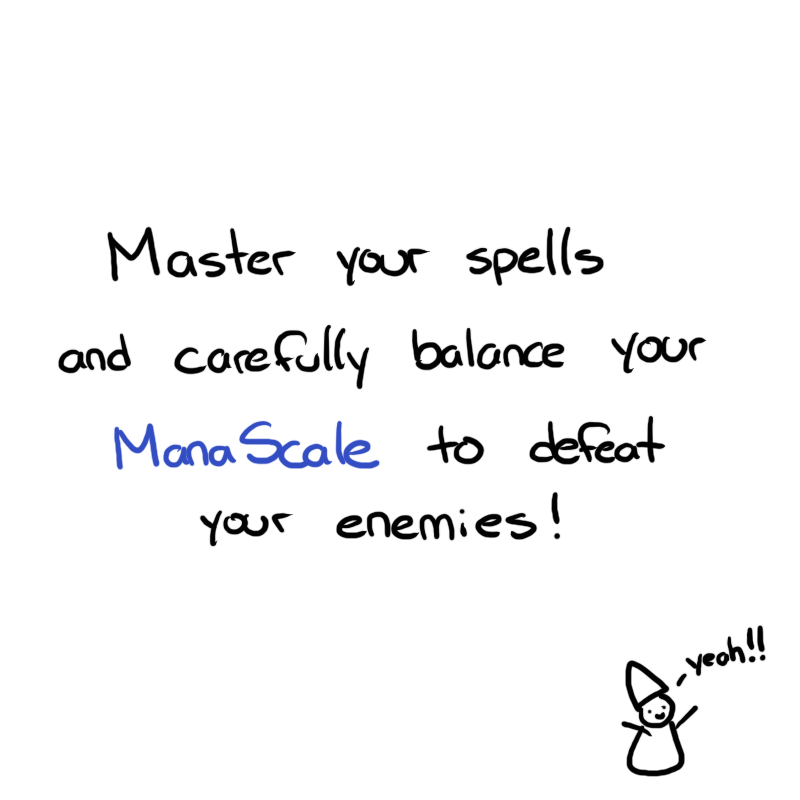 Master your spells
and carefully balance your
ManaScale to defeat
your enemies!
yeah!!